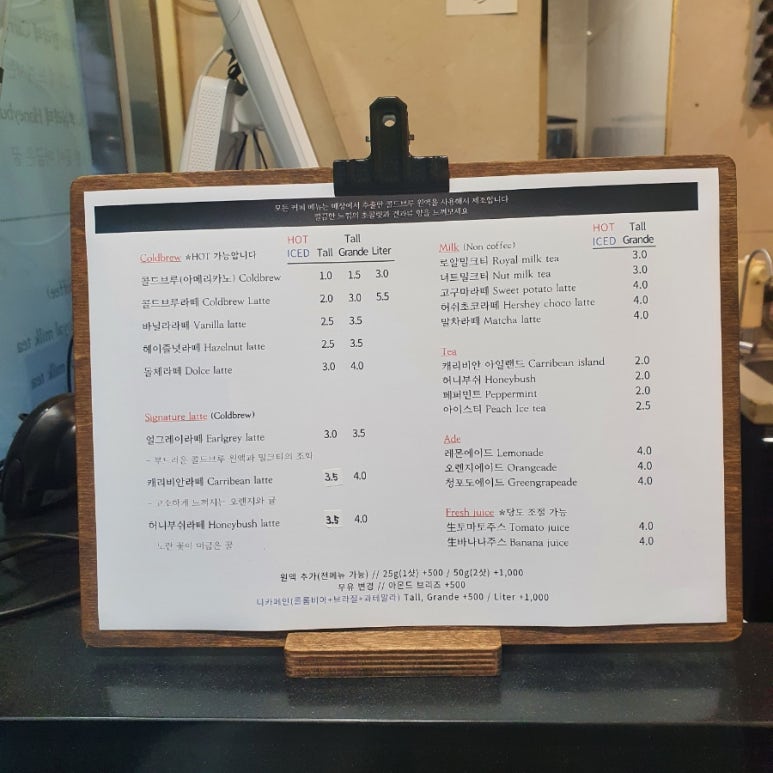 모든 커피 메뉴는 매장에서 추출한 콜드브루 원액을 사용해서 제조합니다
깔끔한 느낌의 초콜릿과 견과류 향을 느껴보세요
HOT
ICED Tall Tall Grande Liter
Coldbrew *HOT 가능합니다
콜드브루(아메리카노) Coldbrew 1.0 1.5 3.0
콜드브루라떼 Coldbrew Latte 2.0 3.0 5.5
바닐라라떼 Vanilla latte 2.5 3.5
헤이즐넛라떼 Hazelnut latte 2.5 3.5
돌체라떼 Dolce latte 3.0 4.0
Signature latte (Coldbrew)
얼그레이라떼 Earlgrey latte 3.0 3.5
- 부드러운 콜드브루 원액과 밀크티의 조화
캐리비안라떼 Carribean latte 3.5 4.0
- 고소하게 느껴지는 오렌지와 귤
허니부쉬라떼 Honeybush latte 3.5 4.0
노란 꽃이 머금은 꿀
HOT Tall
ICED Grande
Milk (Non coffee)
로얄밀크티 Royal milk tea 3.0
너트밀크티 Nut milk tea 3.0
고구마라떼 Sweet potato latte 4.0
허쉬초코라떼 Hershey choco latte 4.0
말차라떼 Matcha latte 4.0
Tea
캐리비안 아일랜드 Carribean island 2.0
허니부쉬 Honeybush 2.0
페퍼민트 Peppermint 2.0
아이스티 Peach Ice tea 2.5
Ade
레몬에이드 Lemonade 4.0
오렌지에이드 Orangeade 4.0
청포도에이드 Greengrapeade 4.0
Fresh juice *당도 조절 가능
生토마토주스 Tomato juice 4.0
生바나나주스 Banana juice 4.0
원액 추가(전메뉴 가능) // 25g(1샷) +500 / 50g(2샷) +1,000
우유 변경 // 아몬드 브리즈 +500
디카페인(콜롬비아+브라질+과테말라) Tall, Grande +500 / Liter +1,000